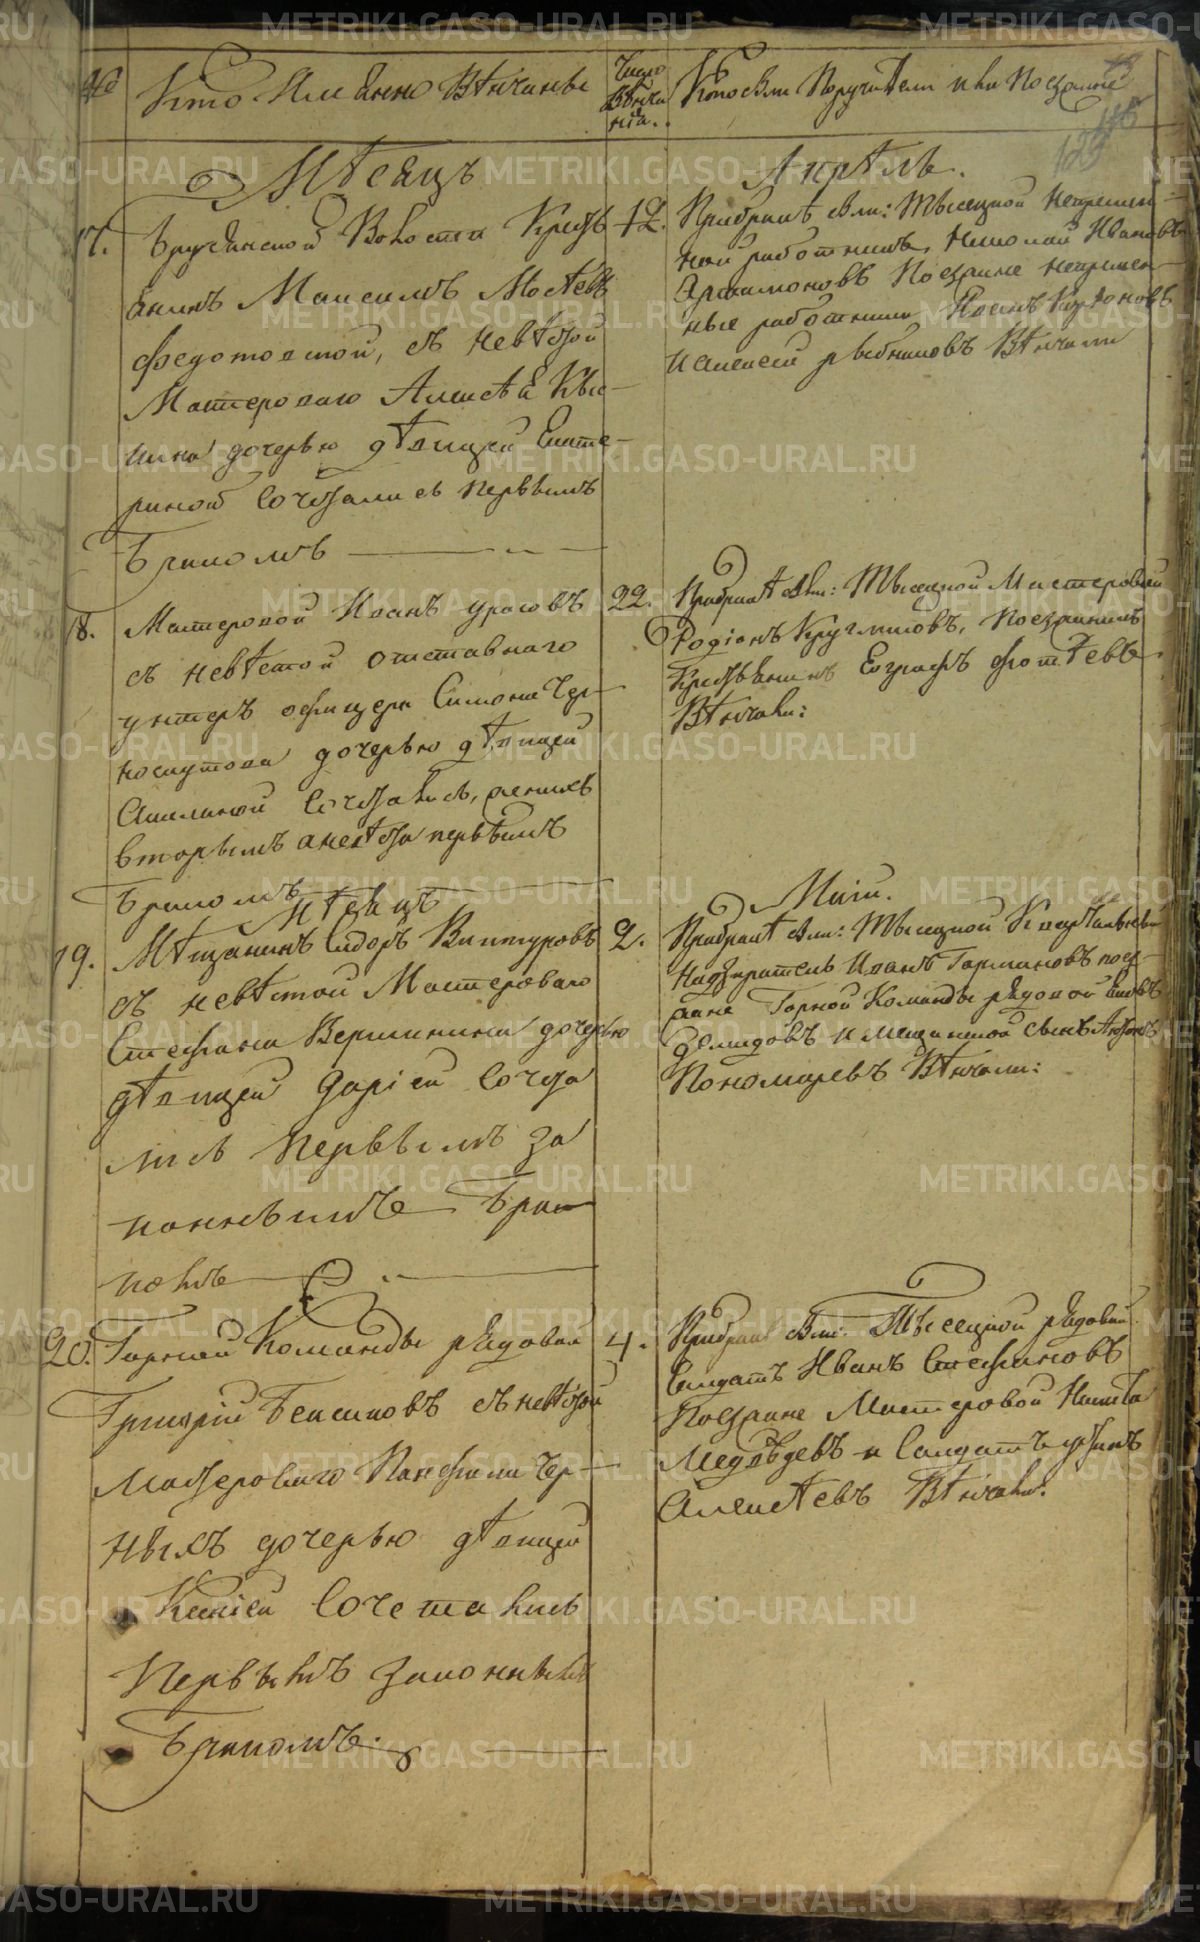 №
Кто Имянно Венчаны
Число
Венча
нiя.
Кто были Поручители или Поезжане
Месяцъ Апрель.
17.
Бруснской Волости Кресть
янинъ Максимъ Мокеевъ
Федотовской, съ невестой
Мастероваго Алексея Кы
кина дочерью девицей Екате
риной Сочетались первымъ
Бракомъ
12.
При браке были: Тысецкой непремен
ной работникъ, Николай Ивановъ
Артамоновъ Поезжане непремен
ные работники
и Алексей Рыбниковъ Венчали
18.
Мастеровой Иванъ
съ невестой отставнаго
унтеръ офицера Симона Чер
носкутова дочерью девицей
Акилиной Сочетались, женихъ
вторымъ а невеста первымъ
Бракомъ
22.
При браке были: Тысецкой Мастеровой
Родiонъ Кругликовъ, Поезжанинъ
Крестьянинъ Евграфъ Фотеевъ
Венчали:
Месяцъ Маiй.
19.
Мещанинъ Сидоръ Винтуровъ
съ невестой Мастероваго
Стефана Вершинина дочерью
девицей Дарiей Соче­та
лись Первымъ За
коннымъ Брак
комъ
2.
При браке были: Тысецкой Квартальный
Надзиратель Иванъ Гармановъ поез
жане Горной Команды рядовой
Демидовъ и мещанской сынъ
Пономаревъ Венчали:
20.
Горной Команды рядовой
Григорiй Бекасовъ съ невестой
Мастероваго Панфила Чер
ныхъ дочерью девицей
Ксенiей Сочетались
Первымъ законнымъ
Бракомъ.
4.
При браке были: Тысецкой рядовой
Солдатъ Иванъ Стефановъ
Поезжане Мастеровой Никита
Медведевъ и Солдатъ
Алексеевъ Венчали.
METRIKI.GASO-URAL.RU